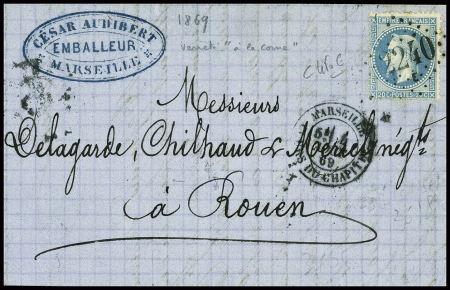 CÉSAR AUDIBERT
EMBALLEUR
MARSEILLE
1869
variété "à la corne"
EMPIRE FRANÇAIS
2240
20 C POSTES 20 C
Messieurs
MARSEILLE
5E
69
DU CHAPITRE
Delagarde, Chilhaud & négts
à Rouen